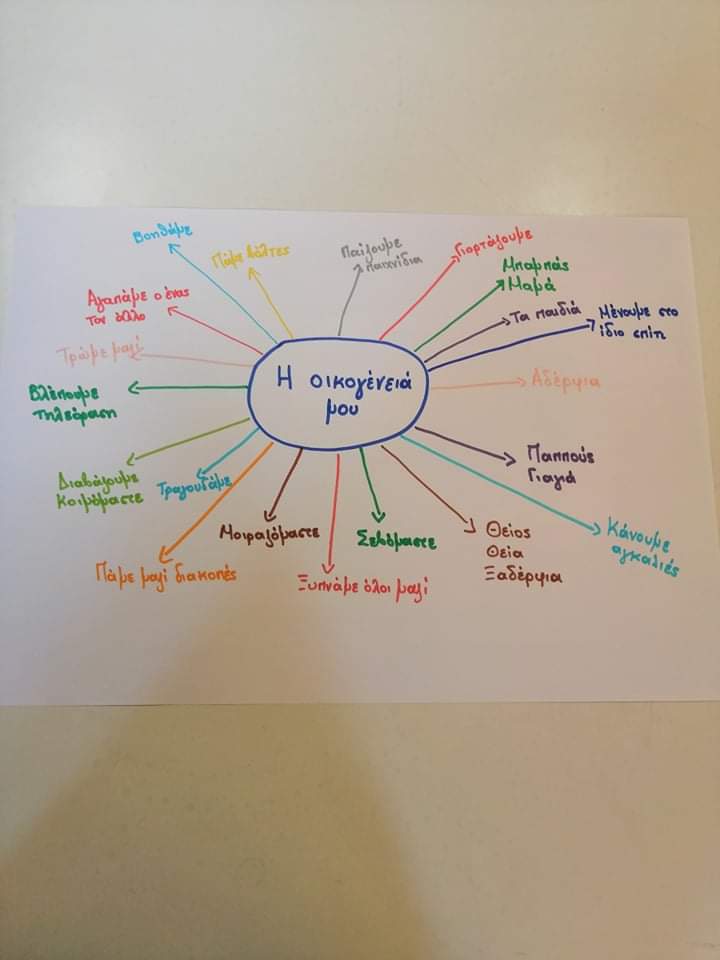 Η οικογένειά
μου
Βοηθάμε
Πάμε βόλτες
Παίζουμε
παιχνίδια
Γιορτάζουμε
Μπαμπάς
Μαμά
Τα παιδιά
Μένουμε στο
ίδιο σπίτι
Αδέρφια
Παππούς
Γιαγιά
Κάνουμε
αγκαλιές
Θείος
Θεία
Ξαδέρφια
Σεβόμαστε
Ξυπνάμε όλοι μαζί
Μοιραζόμαστε
Πάμε μαζί διακοπές
Τραγουδάμε
Διαβάζουμε
Κοιμόμαστε
Βλέπουμε
τηλεόραση
Τρώμε μαζί
Αγαπάμε ο ένας
τον άλλο